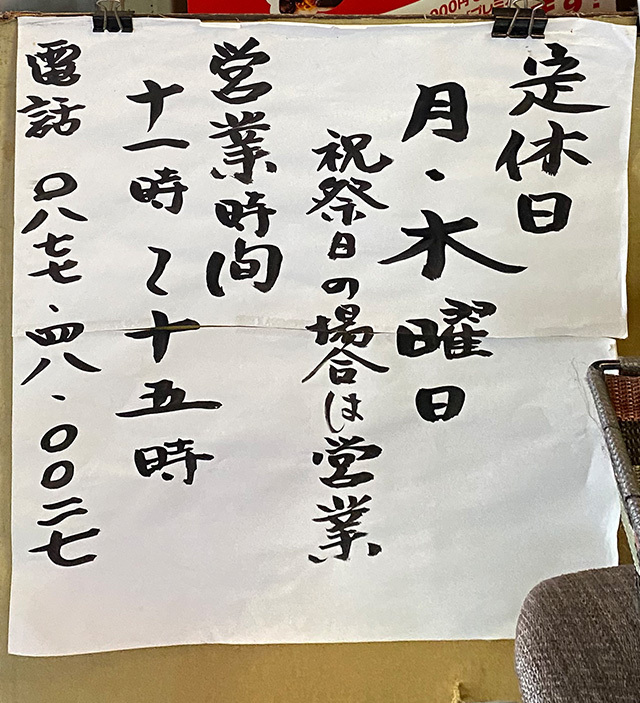 定休日
月・木曜日
祝祭日の場合は営業
営業時間
十一時〜十五時
電話 〇八七七・四八・〇〇二七